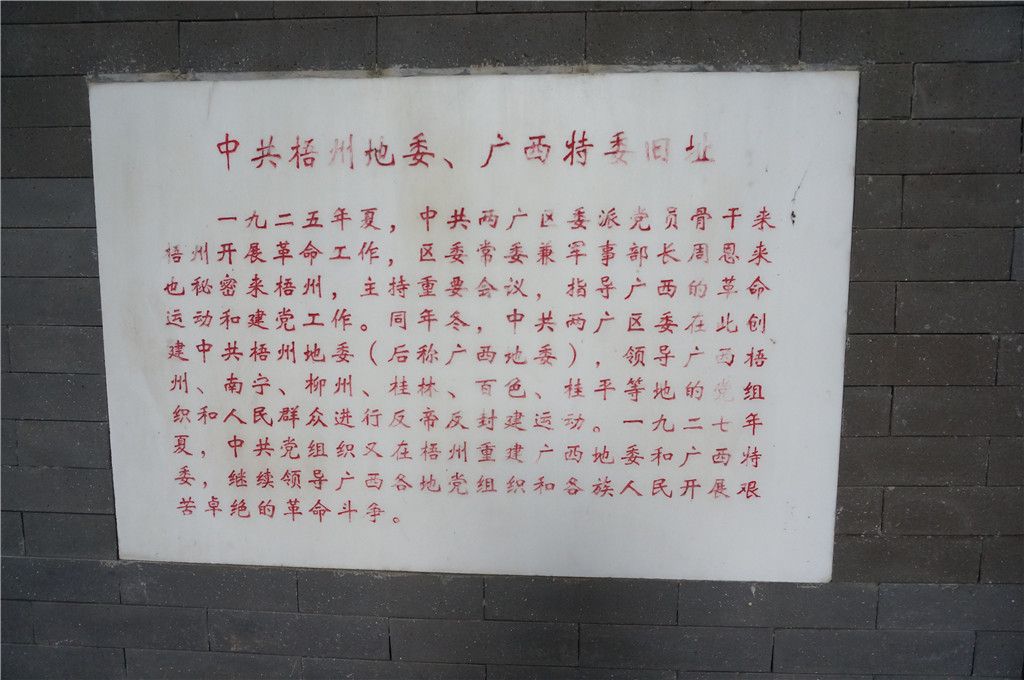 中共梧州地委、广西特委旧址
一九二五年夏，中共两广区委派党员骨干来
梧州开展革命工作，区委常委兼军事部长周恩来
也秘密来梧州，主持重要会议，指导广西的革命
运动和建党工作。同年冬，中共两广区委在此创
建中共梧州地委（后称广西地委），领导广西梧
州、南宁、柳州、桂林、百色、桂平等地的党组
织和人民群众进行反帝反封建运动。一九二七年
夏，中共党组织又在梧州重建广西地委和广西特
委，继续领导广西各地党组织和各族人民开展艰
苦卓绝的革命斗争。